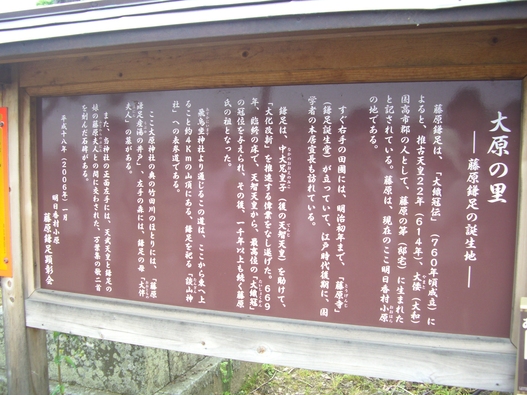 大原の里
― 藤原鎌足の誕生地 ―
藤原鎌足は、「大織冠伝」(760年頃成立)に
よると、推古天皇22年(614年)大倭(大和)
国高市郡の人として、藤原の第(邸宅)に生まれた
と記されている。藤原は、現在のここ明日香村小原
の地である。
すぐ右手の田圃には、明治初年まで、「藤原寺」
(鎌足誕生堂)が立っていて、江戸時代後期に、国
学者の本居宣長も訪れている。
鎌足は、中大兄皇子(後の天智天皇)を助けて、
「大化改新」を推進する偉業をなし遂げた。669
年、臨終の床で、天智天皇から、最高級の「大織冠」
の冠位を与えられ、その後、一千年以上も続く藤原
氏の祖となった。
飛鳥坐神社より通じるこの道は、ここから東へ上
ること約4kmの山頂にある、鎌足を祀る「談山神
社」への表本道である。
ここ大原神社の奥の竹田川のほとりには、「藤原
鎌足産湯の井戸」、左手の森には、鎌足の母「大伴
夫人」の墓がある。
また、当神社の正面左手には、天武天皇と鎌足の
娘の藤原夫人との間に交わされた、万葉集の歌二首
を刻んだ石碑がある。
平成十八年(2006年)一月
明日香村小原
藤原鎌足顕彰会